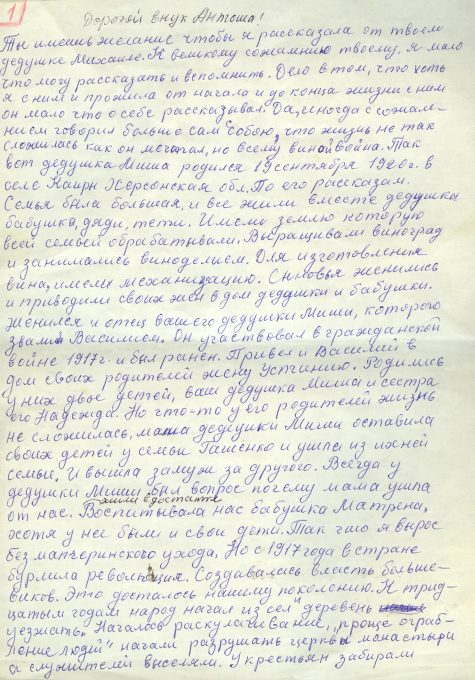 1)
Дорогой внук Антоша!
Ты имеешь желание чтобы я рассказала от твоем
дедушке Михаиле. К великому сожалению твоему, я мало
что могу рассказать и вспомнить. Дело в том, что хоть
я с ним и прожила от начала и до конца жизни с ним
он мало что о себе рассказывал. Да, иногда с сожале-
нием говорил больше сам с собою, что жизнь не так
сложилась как он мечтал, но всему вина война. Так
вот дедушка Миша родился 19 сентября 1920 г. в
селе Каири Херсонская обл. По его рассказам.
Семья была большая, и все жили вместе дедушка
бабушка, дяди, тети. Имели землю которую
всей семьей обрабатывали. Выращивали виноград
и занимались виноделием. Для изготовления
вина, имели механизацию. Сыновья женились
и приводили своих жен в дом дедушки и бабушки.
Женился и отец вашего дедушки Миши, которого
звали Василием. Он участвовал в гражданской
войне 1917 г. и был ранен. Привел и Василий в
дом своих родителей жену Устинию. Родились
у них двое детей, ваш дедушка Миша и сестра
его Надежда. Но что-то у его родителей жизнь
не сложилась, мама дедушки Миши оставила
своих детей у семьи Гашенко и ушла из ихней
семьи. И вышла замуж за другого. Всегда у
дедушки Миши был вопрос почему мама ушла
жили в достатке
от нас. Воспитывала нас бабушка Матрена,
хотя у нее были и свои дети. Так что я вырос
без материнского ухода. Но с 1917 года в стране
бурлила революция. Создавалась власть больше-
виков. Это досталось нашему поколению. К трид-
цатым годам народ начал из сел деревень
уезжать. Началась раскулачивание, "проще ограб-
ление людей" начали разрушать церквы монастыри
а служителей выселяли. У крестьян забирали